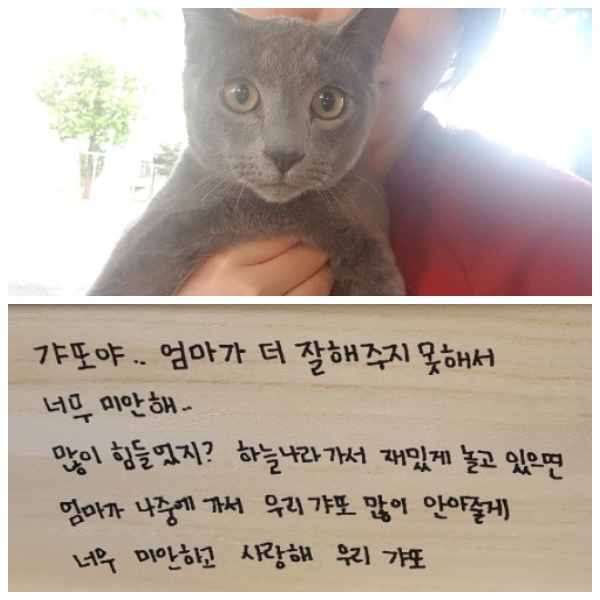 갸또야.. 엄마가 더 잘해주지 못해서
너무 미안해..
많이 힘들었지? 하늘나라가서 재밌게 놀고 있으면
엄마가 나중에 가서 우리 갸또 많이 안아줄게
너무 미안하고 사랑해 우리 갸또